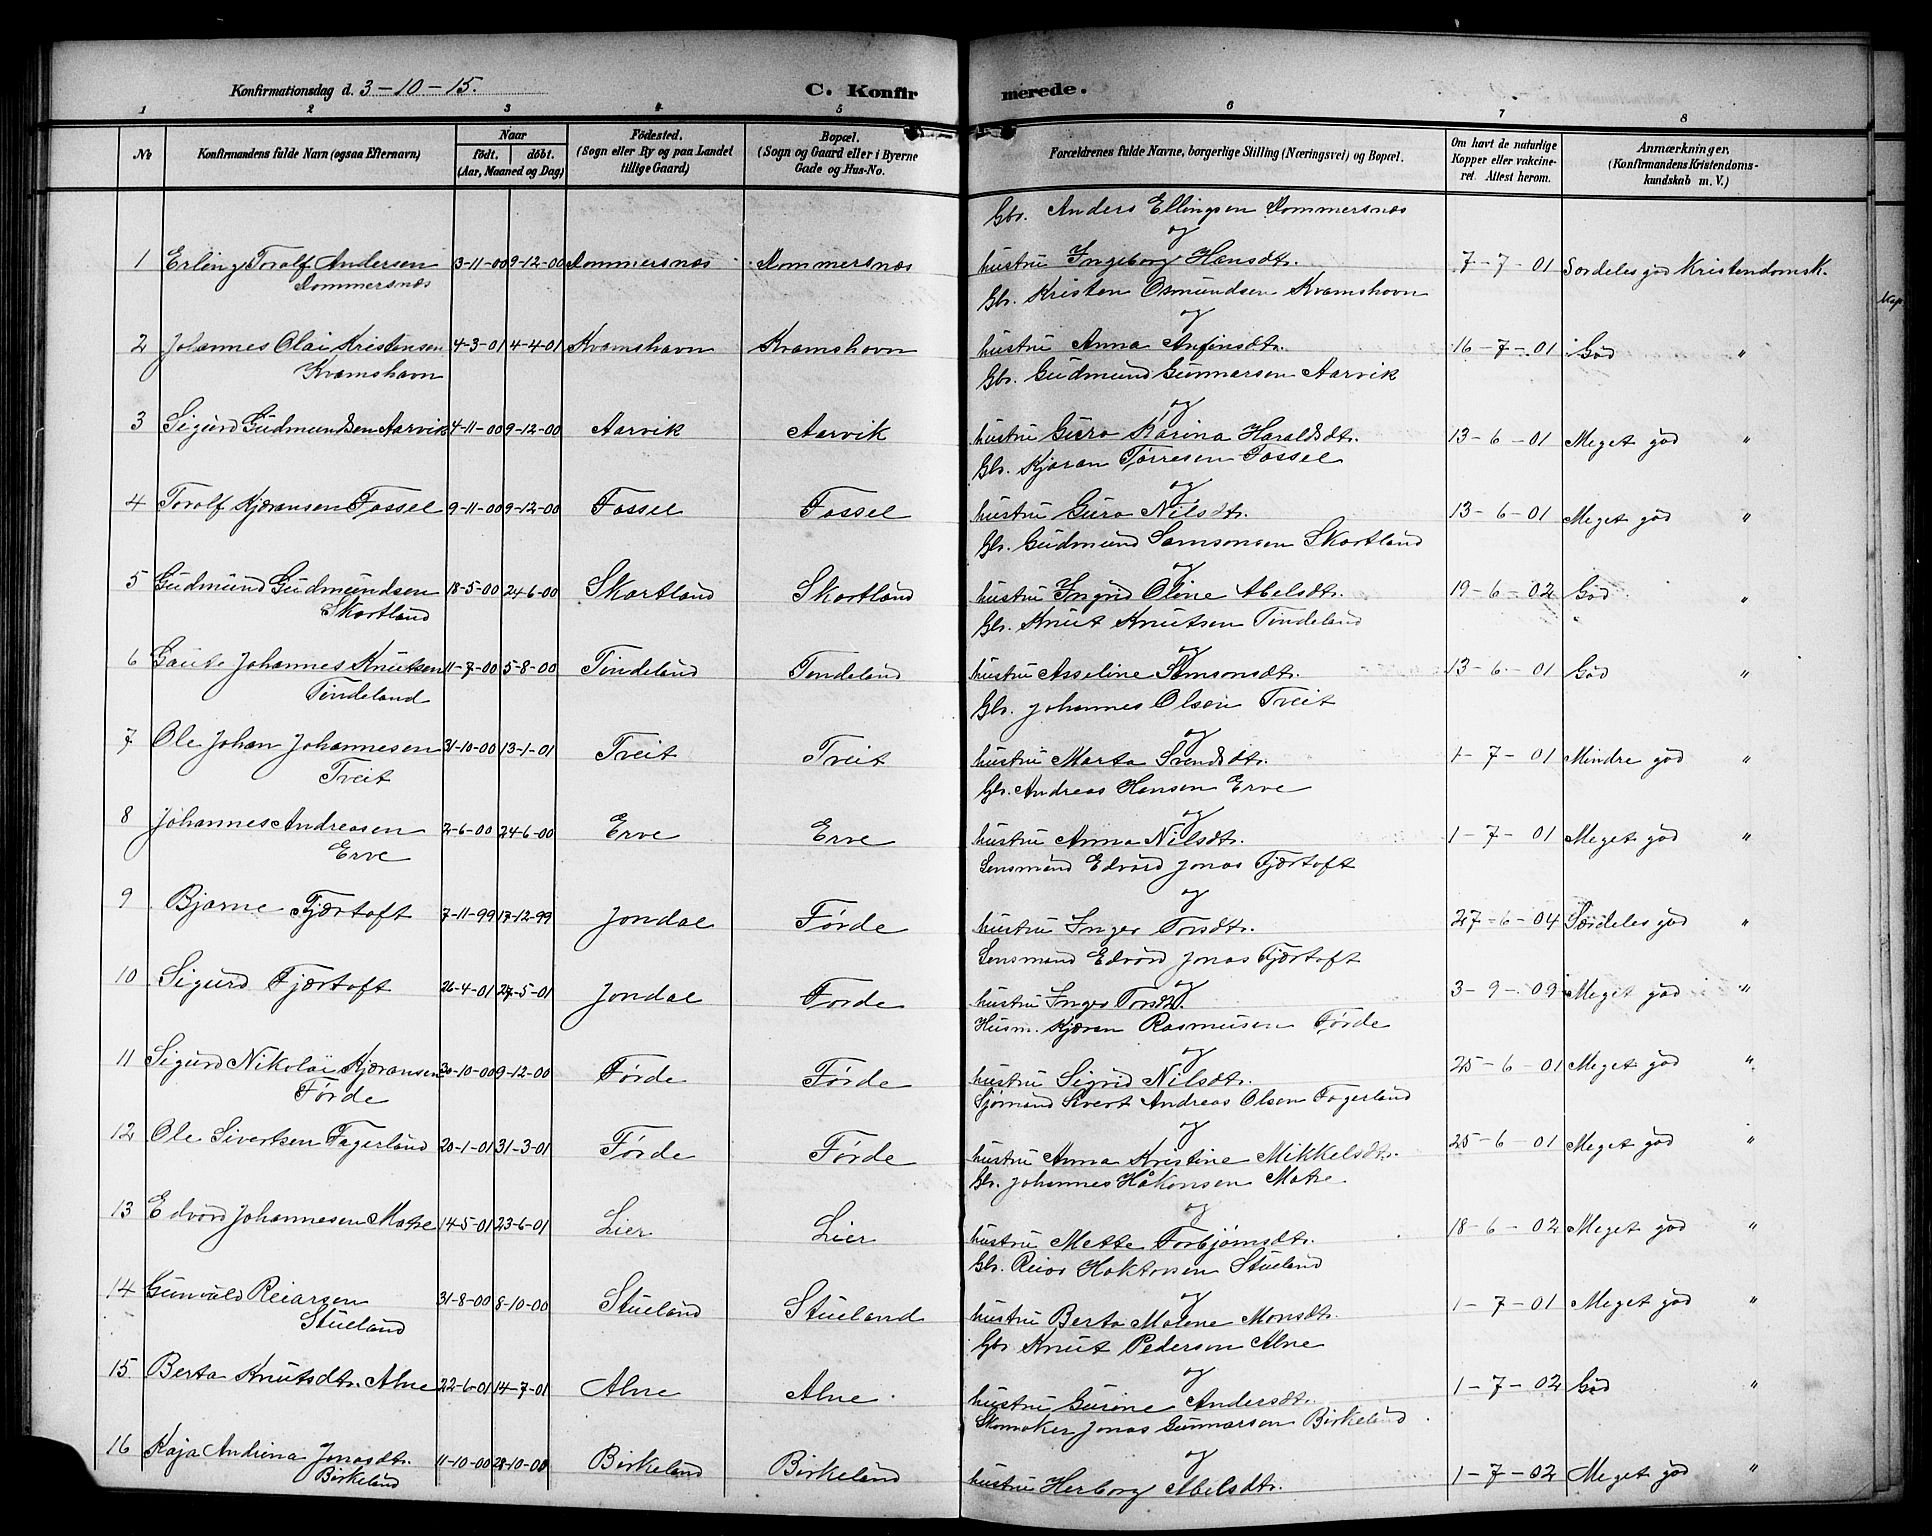 Konfirmationsdag d. 3-10-15. C. Konfirmerede.
1 2 3 4 5 6 7 8
No
Konfirmandens fulde Navn (ogsaa Efternavn)
Naar
født. døbt.
(Aar, Maaned og Dag)
Fødested.
(Sogn eller By og paa Landet
tillige Gaard)
Bopæl.
(Sogn og Gaard eller i Byerne
Gade og Hus-No.
Forældrenes fulde Navne, borgerlige Stilling (Næringsvei) og Bopæl.
Om havt de naturlige
Kopper eller vakcine-
ret. Attest herom.
Anmærkninger,
(Konfirmandens Kristendoms-
kundskab m. V.)
Gbr. Anders Ellingsen Rommersnæs
og
1 Erling Toralf Andersen 3-11-00 9-12-00 Rommersnæs Rommersnæs hustru Ingeborg Hansdtr. 7-7-01 Særdeles god Kristendomsk.
Rommersnæs
Gbr. Kristen Osmundsen Kvamshovn
og
2 Johannes Olai Kristensen 4-3-01 4-4-01 Kvamshavn Kvamshovn hustru Anna Anfinsdtr. 16-7-01 God "
Kvamshavn
Gbr. Gudmund Gunnarsen Aarvik
og
3 Sigurd Gudmundsen Aarvik 4-11-00 9-12-00 Aarvik Aarvik hustru Guro Karina Haraldsdtr. 13-6-01 Meget god "
Gbr. Kjaran Tørresen Fossel
og
4 Toralf Kjæransen Fossel 9-11-00 9-12-00 Fossel Fossel hustru Guro Nilsdtr. 13-6-01 Meget god "
Gbr. Gudmund Samsonsen Skartland
og
5 Gudmund Gudmundsen 18-5-00 24-6-00 Skartland Skartland hustru Ingrid Oline Abelsdtr. 19-6-02 God "
Skartland
Gbr. Knut Knutsen Tindeland
og
6 Gaute Johannes Knutsen 11-7-00 5-8-00 Tindeland Tindeland hustru Asseline Samsonsdtr. 13-6-01 God "
Tindeland
Gbr. Johannes Olsen Tveit
og
7 Ole Johan Johannesen 31-10-00 13-1-01 Tveit Tveit hustru Marta Svendsdtr. 1-7-01 Mindre god "
Tveit
Gbr. Andreas Hansen Erve
og
8 Johannes Andreasen 2-6-00 24-6-00 Erve Erve hustru Anna Nilsdtr. 1-7-01 Meget god "
Erve
Lensmand Edvard Jonas Fjærtoft
og
9 Bjarne Fjærtoft 7-11-99 17-12-99 Jondal Førde hustru Inger Torsdtr. 27-6-04 Særdeles god "
Lensmand Edvard Jonas Fjærtoft
og
10 Sigurd Fjærtoft 26-4-01 27-5-01 Jondal Førde hustru Inger Torsdtr. 3-9-09 Meget god "
Husm. Kjæran Rasmusen Førde
og
11 Sigurd Nikolai Kjæransen 30-10-00 9-12-00 Førde Førde hustru Sigrid Nilsdtr. 25-6-01 Meget god "
Førde
Sjømand Sivert Andreas Olsen Fagerland
og
12 Ole Sivertsen Fagerland 20-1-01 31-3-01 Førde Førde hustru Anna Kristine Mikkelsdtr. 25-6-01 Meget god "
Gbr. Johannes Håkonsen Matre
og
13 Edvard Johannesen Matre 14-5-01 23-6-01 Lier Lier hustru Mette Torbjørnsdtr. 18-6-02 Meget god "
Gbr. Reiar Haktorsen Stueland
og
14 Gunvald Reiarsen 31-8-00 8-10-00 Stueland Stueland hustru Berta Malene Monsdtr. 1-7-01 Meget god "
Stueland
Gbr Knut Pedersen Alne
og
15 Berta Knutsdtr. Alne 22-6-01 14-7-01 Alne Alne hustru Gurine Andersdtr. 1-7-02 God "
Skomaker Jonas Gunnarsen Birkeland
og
16 Kaja Andrina Jonasdtr. 11-10-00 28-10-00 Birkeland Birkeland hustru Herborg Abelsdtr. 1-7-02 Meget god "
Birkeland